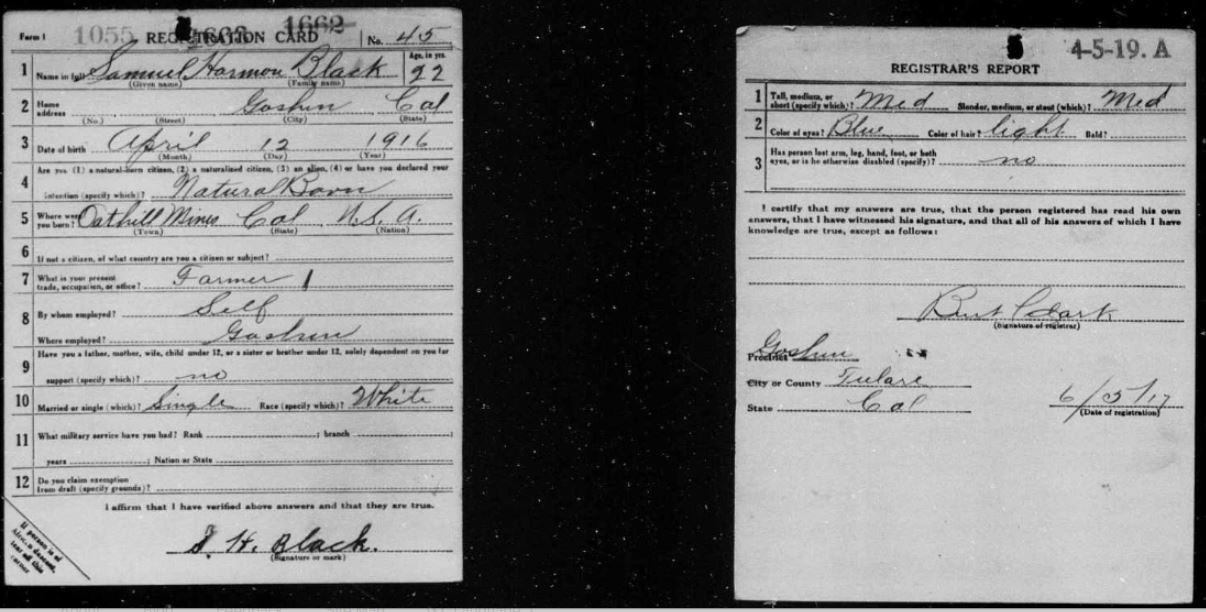 Form 1 1055 REGISTRATION CARD 1662 No. 45
1 Name in full Samuel Harmon Black Age, in yrs. 22
(Given name) (Family name)
2 Home address Goshun Cal
(No.) (Street) (City) (State)
3 Date of birth April 12 1916
(Month) (Day) (Year)
4 Are you (1) a natural-born citizen, (2) a naturalized citizen, (3) an alien, (4) or have you declared your
intention (specify which)? Natural Born
5 Where were you born? Oathill Mines Cal. U.S.A.
(Town) (State) (Nation)
6 If not a citizen, of what country are you a citizen or subject?
7 What is your present trade, occupation, or office? Farmer
8 By whom employed? Self
Where employed? Goshun
9 Have you a father, mother, wife, child under 12, or a sister or brother under 12, solely dependent on you for
support (specify which)? no
10 Married or single (which)? Single Race (specify which)? White
11 What military service have you had? Rank ; branch ;
years ; Nation or State
12 Do you claim exemption from draft (specify grounds)?
I affirm that I have verified above answers and that they are true.
S. H. Black.
(Signature or mark)
If person is of
African descent,
tear off this
corner
4-5-19. A
REGISTRAR'S REPORT
1 Tall, medium, or short (specify which)? Med Slender, medium, or stout (which)? Med
2 Color of eyes? Blue Color of hair? light Bald?
3 Has person lost arm, leg, hand, foot, or both
eyes, or is he otherwise disabled (specify)? no
I certify that my answers are true, that the person registered has read his own
answers, that I have witnessed his signature, and that all of his answers of which I have
knowledge are true, except as follows:
Burt Clark
(Signature of registrar)
Precinct Goshun
City or County Tulare
State Cal 6/5/17
(Date of registration)